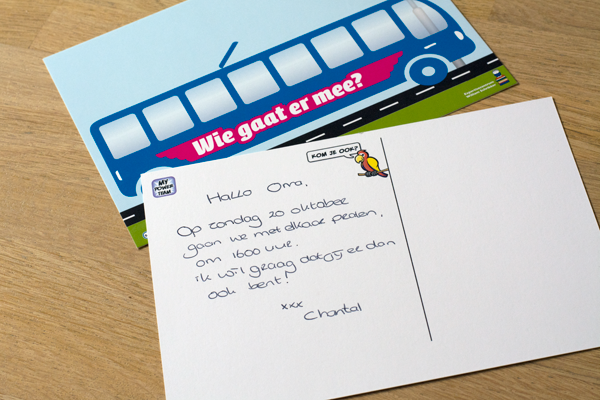 Wie gaat er mee?
MY
POWER
TEAM
KOM JE OOK?
Hallo Oma,
Op zondag 20 oktober
gaan we met elkaar praten,
om 1600 uur.
ik wil graag dat jij er dan
ook bent!
xxx
Chantal